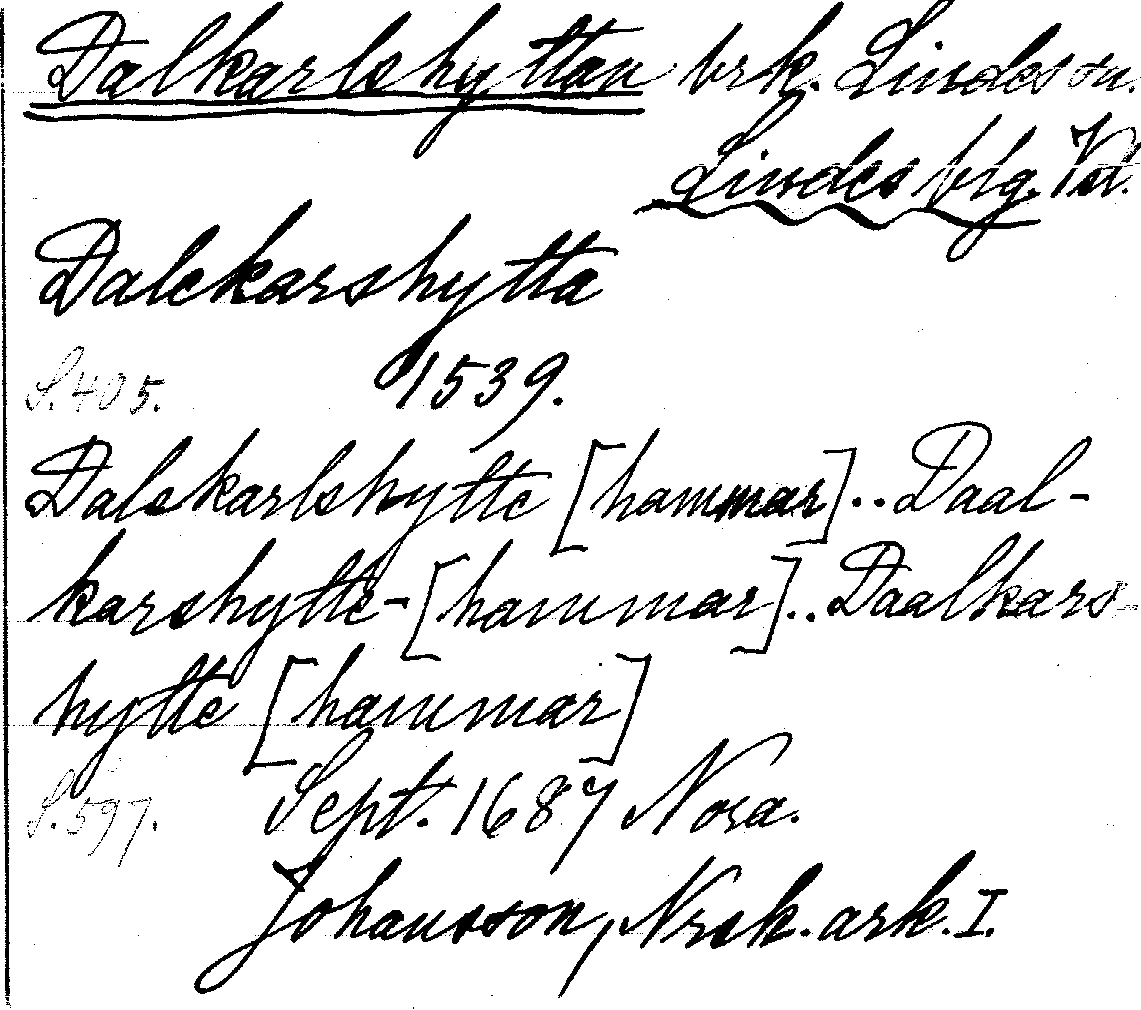 Dalkarlshyttan brk. Lindes sn.
Lindes blg. Vstl.
Dalekarshytta
S. 405. 1539.
Dalekarlshytte [hammar].. Daal-
karshytte-[hammar].. Daalkars-
hytte [hammar]
S. 597. Sept. 1687 Nora.
Johansson, Nrsk. ark. I.